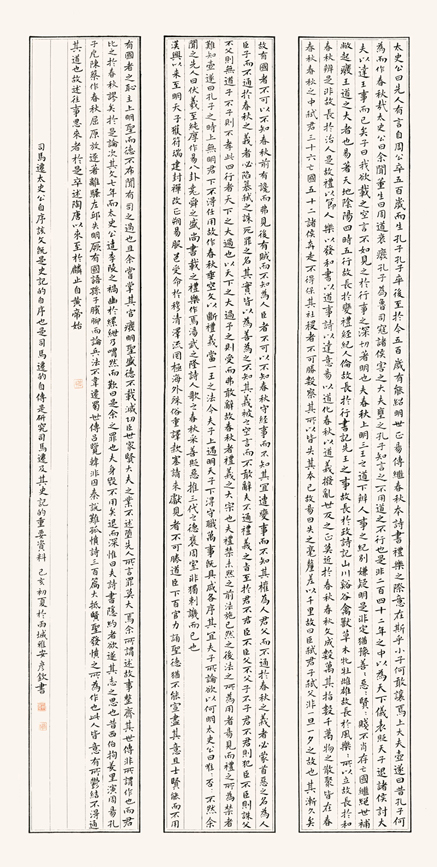 太史公曰先人有言自周公卒五百歲而生孔子孔子卒後至於今五百歲有能紹明世正易傳繼春秋本詩書禮樂之際意在斯乎小子何敢讓焉上大夫壺遂曰昔孔子何
為而作春秋哉太史公曰余聞董生曰周道衰廢孔子為魯司寇諸侯害之大夫壅之孔子知言之不用道之不行也是非二百四十二年之中以為天下儀表貶天子退諸侯討大
夫以達王事而已矣子曰我欲載之空言不如見之於行事之深切著明也夫春秋上明三王之道下辨人事之紀別嫌疑明是非定猶豫善善惡惡賢賢賤不肖存亡國繼絕世補
敝起廢王道之大者也易著天地陰陽四時五行故長於變禮經紀人倫故長於行書記先王之事故長於政詩記山川谿谷禽獸草木牝牡雌雄故長於風樂樂所以立故長於和
春秋辨是非故長於治人是故禮以節人樂以發和書以道事詩以達意易以道化春秋以道義撥亂世反之正莫近於春秋春秋文成數萬其指數千萬物之散聚皆在
春秋春秋之中弒君三十六亡國五十二諸侯奔走不得保其社稷者不可勝數察其所以皆失其本已故易曰失之毫釐差以千里故曰臣弒君子弒父非一旦一夕之故也其漸久矣
故有國者不可以不知春秋前有讒而弗見後有賊而不知為人臣者不可以不知春秋守經事而不知其宜遭變事而不知其權為人君父而不通於春秋之義者必蒙首惡之名為人
臣子而不通於春秋之義者必陷篡弒之誅死罪之名其實皆以為善為之不知其義被之空言而不敢辭夫不通禮義之旨至於君不君臣不臣父不父子不子君不君則犯臣不臣則誅父
不父則無道子不子則不孝此四行者天下之大過也以天下之大過予之則受而弗敢辭故春秋者禮義之大宗也夫禮禁未然之前法施已然之後法之所為用者易見而禮之所為禁者
難知壺遂曰孔子之時上無明君下不得任用故作春秋垂空文以斷禮義當一王之法今夫子上遇明天子下得守職萬事既具咸各序其宜夫子所論欲以何明太史公曰唯唯否否不然余
聞之先人曰伏羲至純厚作易八卦堯舜之盛尚書載之禮樂作焉湯武之隆詩人歌之春秋采善貶惡推三代之德褒周室非獨刺譏而已也
漢興以來至明天子獲符瑞建封禪改正朔易服色受命於穆清澤流罔極海外殊俗重譯款塞請來獻見者不可勝道臣下百官力誦聖德猶不能宣盡其意且士賢能而不用
有國者之恥主上明聖而德不布聞有司之過也且余嘗掌其官廢明聖盛德不載滅功臣世家賢大夫之業不述墮先人所言罪莫大焉余所謂述故事整齊其世傳非所謂作也而君
比之於春秋謬矣於是論次其文七年而太史公遭李陵之禍幽於縲紲乃喟然而歎曰是余之罪也夫身毀不用矣退而深惟曰夫詩書隱約者欲遂其志之思也昔西伯拘羑里演周易孔
子戹陳蔡作春秋屈原放逐著離騷左丘失明厥有國語孫子臏腳而論兵法不韋遷蜀世傳呂覽韓非囚秦說難孤憤詩三百篇大抵賢聖發憤之所為作也此人皆意有所鬱結不得通
其道也故述往事思來者於是卒述陶唐以來至於麟止自黃帝始
司馬遷太史公自序該文既是史記的自序也是司馬遷的自傳是研究司馬遷及其史記的重要資料 己亥初夏於雨城雅安彥欽書